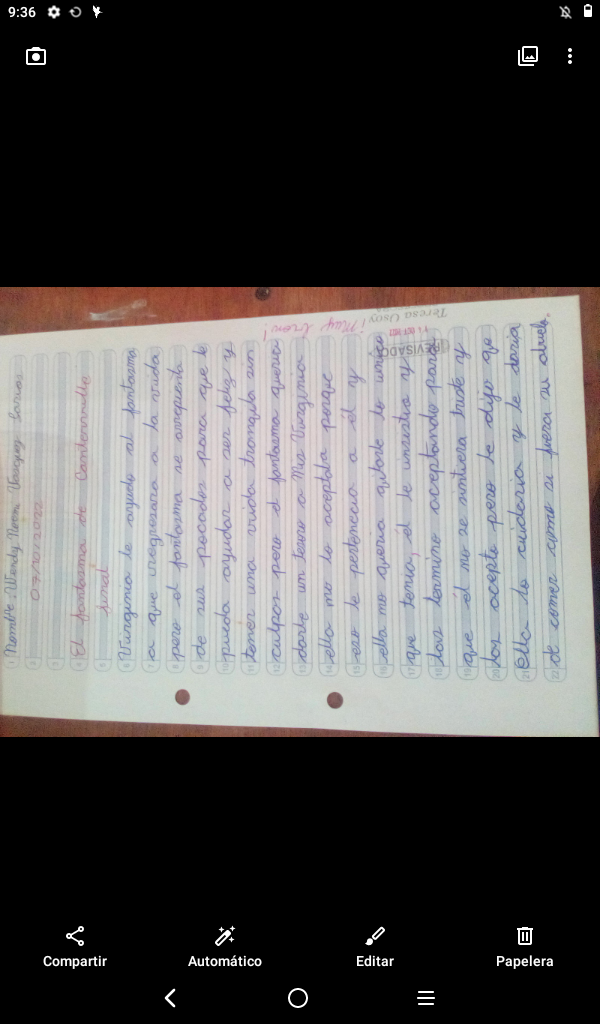 9:36
Nombre: Wendy Noemi Vasquez Barios
07/10/2022
El fantasma de Canterville
final
Virginia le ayudo al fantasma
a que regresara a la vida
pero el fantasma se arrepintio
de sus pecados para que lo
pueda ayudar a ser feliz y
tener una vida tranquila sin
culpas pero el fantasma queria
darle un tesoro a Mis Virginia
ella no lo aceptba porque
eso le pertenecia a él y
ella no queria quitarle lo unico
que tenia, el le insistia y
los termino aceptando para
que él no se sintiera triste y
los acepto pero le dijo qe
Ella lo cuidaria y le daria
de comer como si fuera su
¡Muy bien!
REVISADO
Teresa
1
2
3
4
5
6
7
8
9
10
11
12
13
14
15
16
17
18
19
20
21
22
Compartir
Automático
Editar
Papelera